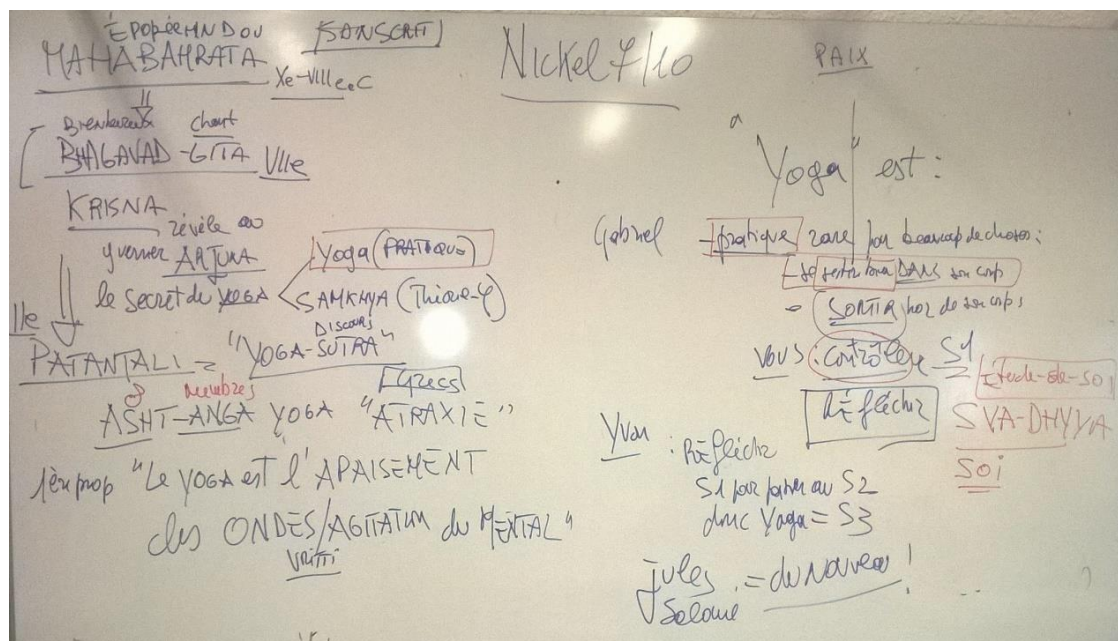 ÉPOPÉE HINDOU [SANSCRIT]
MAHABAHRATA Xe-VIIIe.C
Bienheureux Chant
BHAGAVAD-GITA VIIe
KRISNA révèle au
guerrier ARJUNA
le secret du YOGA
Yoga (PRATIQUE)
SAMKHYA (Théorie-φ)
IIe
DISCOURS
PATANTALI = "YOGA-SUTRA"
8 Membres Grecs
ASHT-ANGA YOGA "ATRAXIE"
1ère prop "Le YOGA est l'APAISEMENT
des ONDES/AGITATION du MENTAL"
VRITTI
Nickel 7/10
PAIX
"Yoga" est :
Gabriel - pratique zarre pour beaucoup de choses :
- se sentir bien DANS son corps
- SORTIR hor de son corps
Vous : Contrôle S1
RÉfléchir
Étude-de-soi
SVA-DHYYA
SOI
Yvan : Réfléchir
S1 pour passer au S2
donc Yoga = S3
Jules = du Nouveau !
Solane